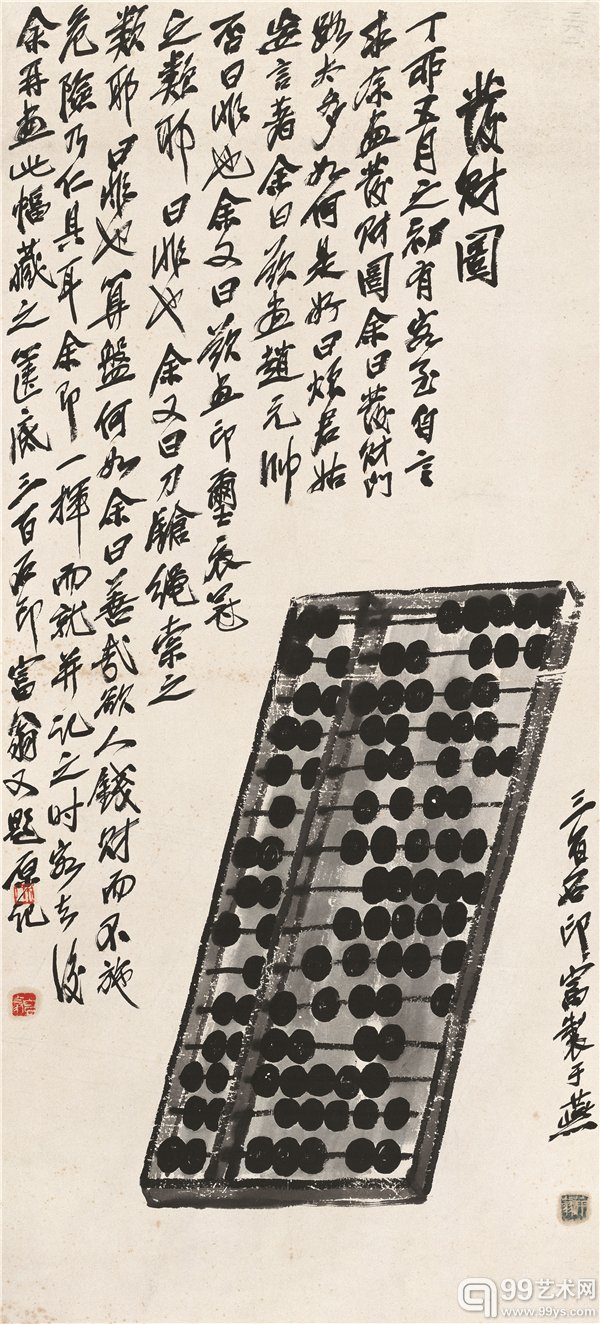 發財圖
丁卯五月之初有客至自言
求余畫發財圖余曰發財門
路太多如何是好曰煩君姑
妄言著余曰欲畫趙元帥
否曰非也余又曰欲畫印璽衣冠
之類耶曰非也余又曰刀鎗繩索之
類耶曰非也算盤何如余曰善哉欲人錢財而不施
危險乃仁具耳余即一揮而就并記之時客去後
余再畫此幅藏之篋底三百石印富翁又題原記
三百石印富製于燕
99艺术网
www.99ys.com